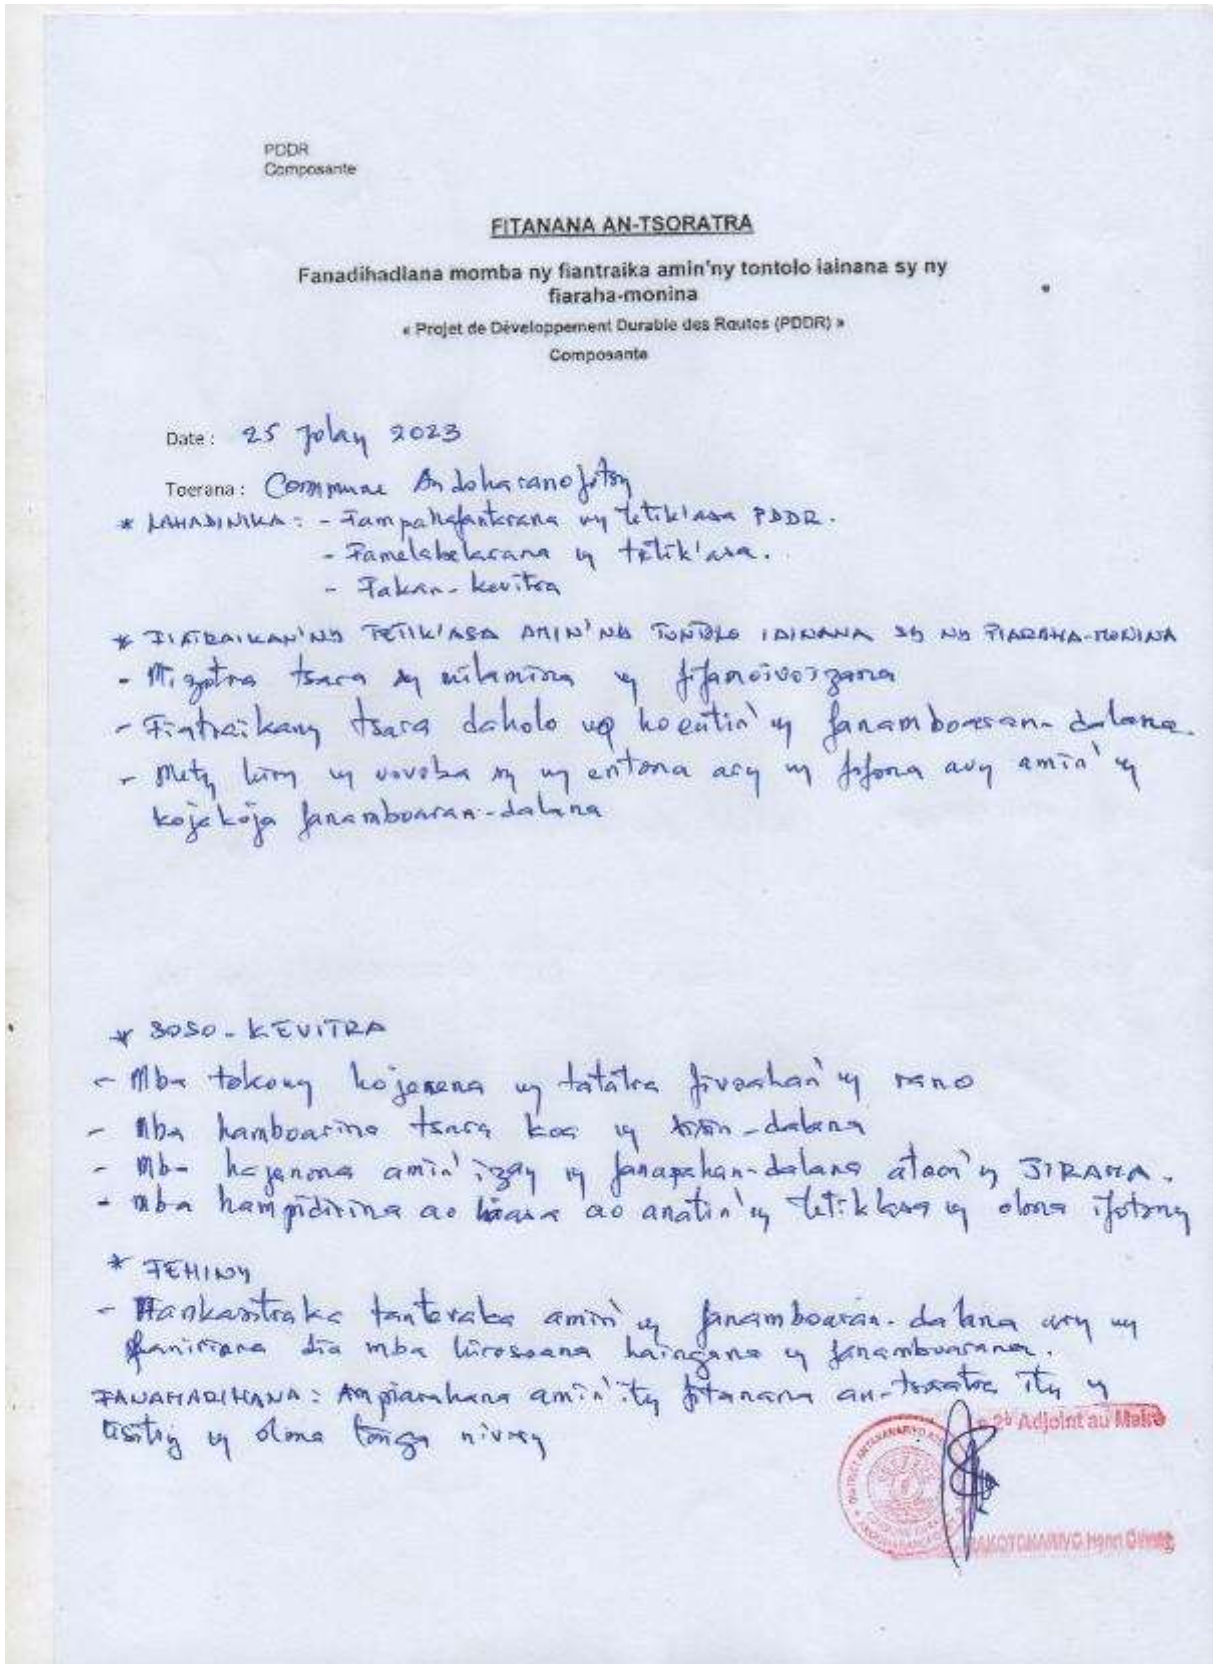 PDDR
Composante
FITANANA AN-TSORATRA
Fanadihadiana momba ny fiantraika amin'ny tontolo iainana sy ny
fiaraha-monina
« Projet de Développement Durable des Routes (PDDR) »
Composante
Date : 25 Jolay 2023
Toerana : Commune Andoharanofotsy
* LAHADINIKA : - Fampahafantarana ny tetik'asa PDDR.
- Famelabelarana ny tetik'asa.
- Fakan-kevitra
* FIATRAIKAN'NY TETIK'ASA AMIN'NY TONTOLO IAINANA SY NY FIARAHA-MONINA
- Mizotra tsara sy milamina ny fifamoivoizana
- Fiatraikany tsara daholo no hoentin'ny fanamboaran-dalana.
- Mety hisy ny vovoka sy ny entona ary ny fofona avy amin'ny
kojakoja fanamboaran-dalana
* SOSO-KEVITRA
- Mba tokony hojerena ny tatatra fivoahan'ny rano
- Mba hamboarina tsara koa ny sisin-dalana
- Mba hajanona amin'izay ny fanapahan-dalana ataon'ny JIRAMA.
- Mba hampidirina ao hiasa ao anatin'ny tetikasa ny olona ifotony
* FEHINY
- Mankasitraka tanteraka amin'ny fanamboaran-dalana ary ny
faniriana dia mba hirosoana haingana ny fanamboarana.
FANAMARIHANA : Ampiarahana amin'ity fitanana an-tsoratra ity ny
lisitry ny olona tonga nivory
Adjoint au Maire
DISTRICT ANTANANARIVO
Henri